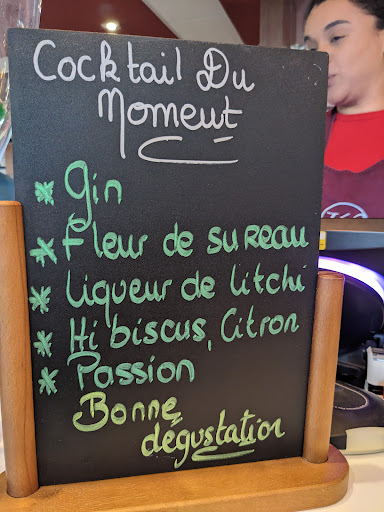 Cocktail Du
Moment
* Gin
* Fleur de sureau
* Liqueur de litchi
* Hibiscus, Citron
* Passion
Bonne
dégustation